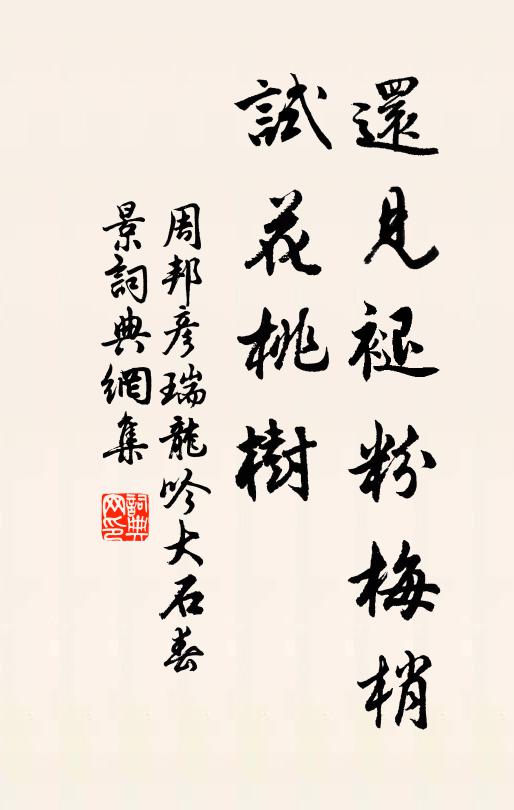 還見褪粉梅梢
試花桃樹
周邦彦瑞龍吟大石春
景詞典網集
詞典网印